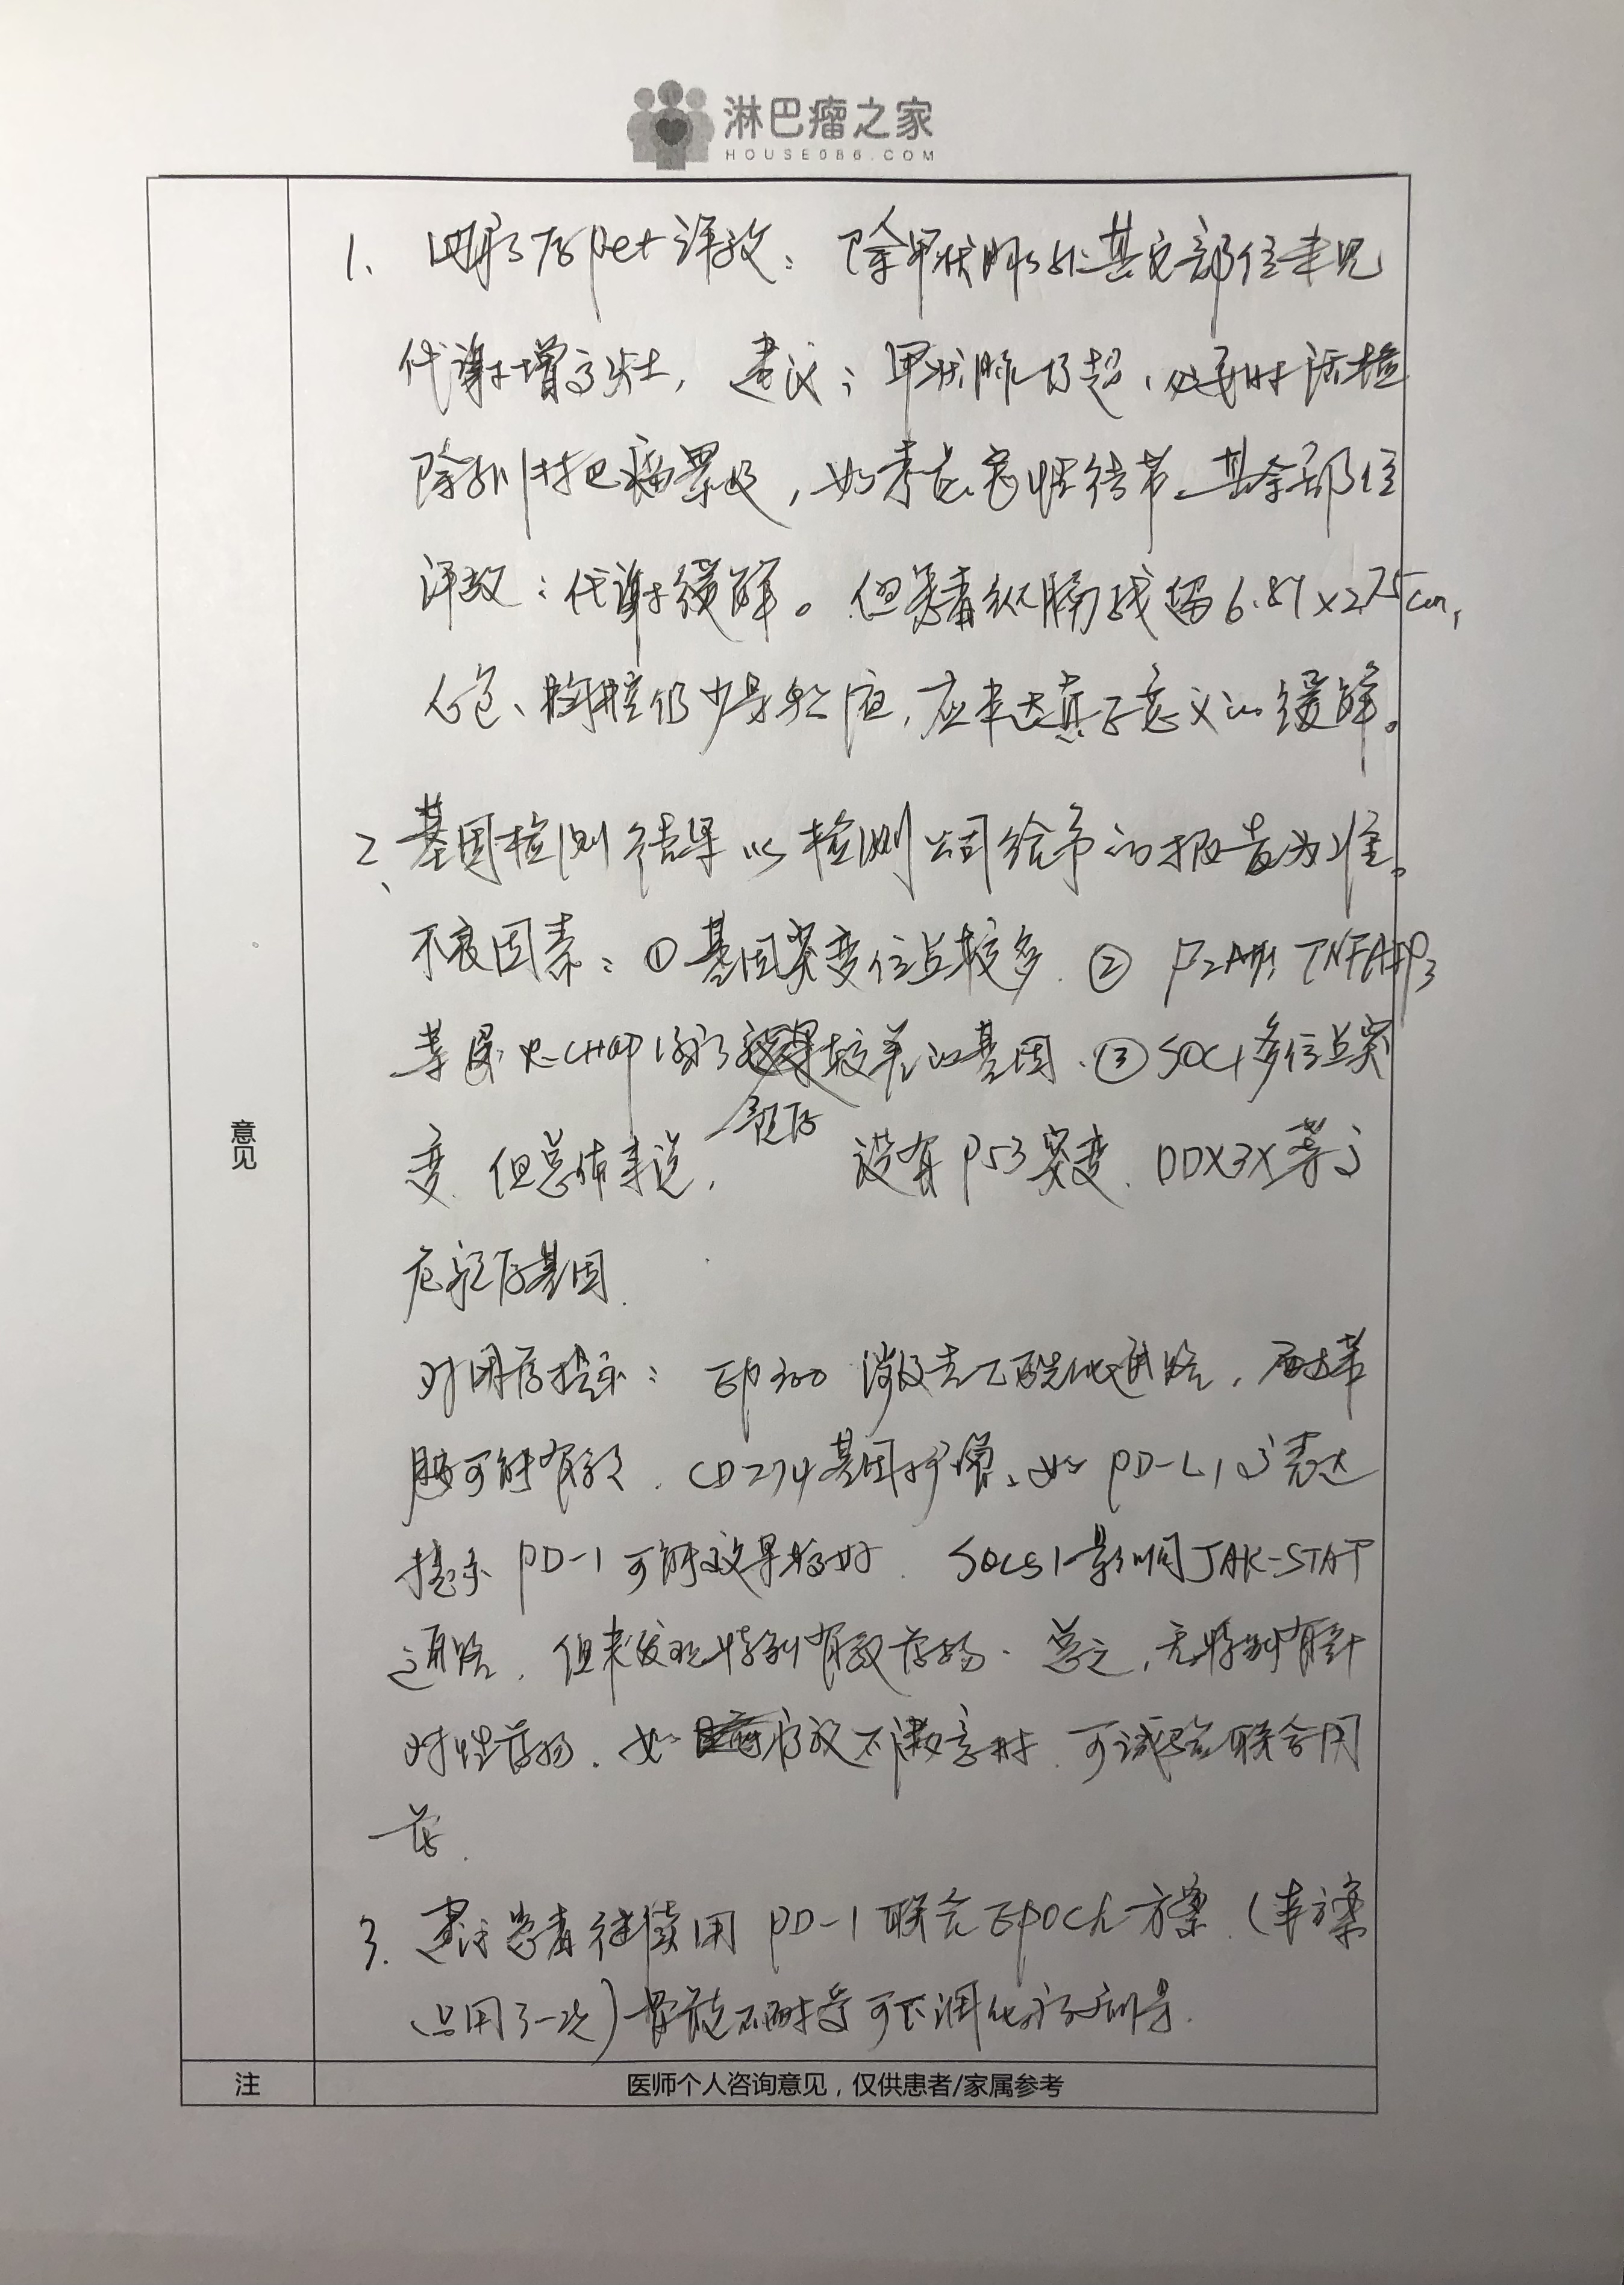 淋巴瘤之家
HOUSE086.COM
1、四疗后pet评效：除甲状腺外其它部位未见
代谢增高灶，建议：甲状腺彩超，必要时活检
除外淋巴瘤累及，如考虑良性结节，其余部位
评效：代谢缓解。但患者纵膈残留6.87×2.75cm，
心包、胸腔仍少量积液，应未达真正意义的缓解。
2、基因检测结果以检测公司给予的报告为准。
不良因素：①基因突变位点较多 ② TNFAIP3
等是R-CHOP 预后较差的基因、③SOC1多位点突
变 但总体来说，没有P53突变、DDX3X等高
危预后基因
对用药提示：EP300 涉及去乙酰化通路，西达苯
胺可能有效、CD274基因扩增、如PD-L1高表达
提示PD-1可能效果较好 SOCS1影响JAK-STAT
通路，但未发现特别有效药物. 总之，无特别有针
对性药物、如疗效不满意时 可试验联合用
药
3、建议患者继续用PD-1联合EPOCH方案（本方案
只用了一次）若不耐受可下调化疗剂量.
意见
注
医师个人咨询意见，仅供患者/家属参考